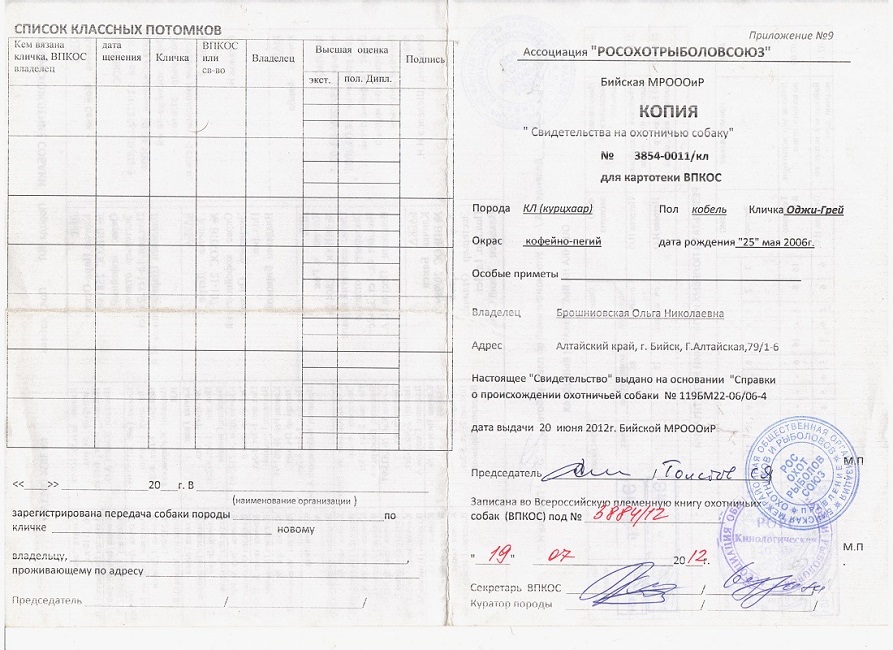 СПИСОК КЛАССНЫХ ПОТОМКОВ
Кем вязана кличка, ВПКОС владелец
дата щенения
Кличка
ВПКОС или св-во
Владелец
Высшая оценка
экст.
пол. Дипл.
Подпись
<<____>> ____________ 20___г. В ____________
(наименование организации )
зарегистрирована передача собаки породы ____________ по
кличке ____________ новому
владельцу, ____________,
проживающему по адресу ____________
Председатель ____________/____________/
Приложение №9
Ассоциация "РОСОХОТРЫБОЛОВСОЮЗ"
Бийская МРОООиР
КОПИЯ
" Свидетельства на охотничью собаку"
№ 3854-0011/кл
для картотеки ВПКОС
Порода КЛ (курцхаар) Пол кобель Кличка Оджи-Грей
Окрас кофейно-пегий дата рождения "25" мая 2006г.
Особые приметы ____________
Владелец Брошниовская Ольга Николаевна
Адрес Алтайский край, г. Бийск, Г.Алтайская,79/1-6
Настоящее "Свидетельство" выдано на основании "Справки
о происхождении охотничьей собаки № 119БМ22-06/06-4
дата выдачи 20 июня 2012г. Бийской МРОООиР
М.П
Председатель
Записана во Всероссийскую племенную книгу охотничьих
собак (ВПКОС) под № 5884/12
" 19 " 07 2012г.
М.П.
Секретарь ВПКОС
Куратор породы
РОС ОХОТ РЫБОЛОВ СОЮЗ
Кинологический